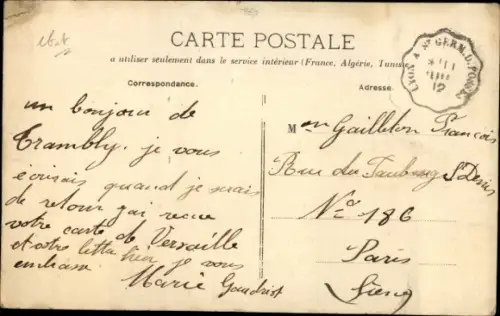 etat
CARTE POSTALE
a utiliser seulement dans le service intérieur (France, Algérie, Tunisie
LYON A ST GERM.D.FOSSES
11
12
Correspondance.
Adresse.
un bonjour de
Trambly. je vous
écrirais quand je serais
de retour jai recue
votre carte de Versaille
et votre lettre hier je vous
embrasse
Marie Gaudrist
Mon Gailleton François
Rue du Faubourg St Denis
No 186
Paris
Seine